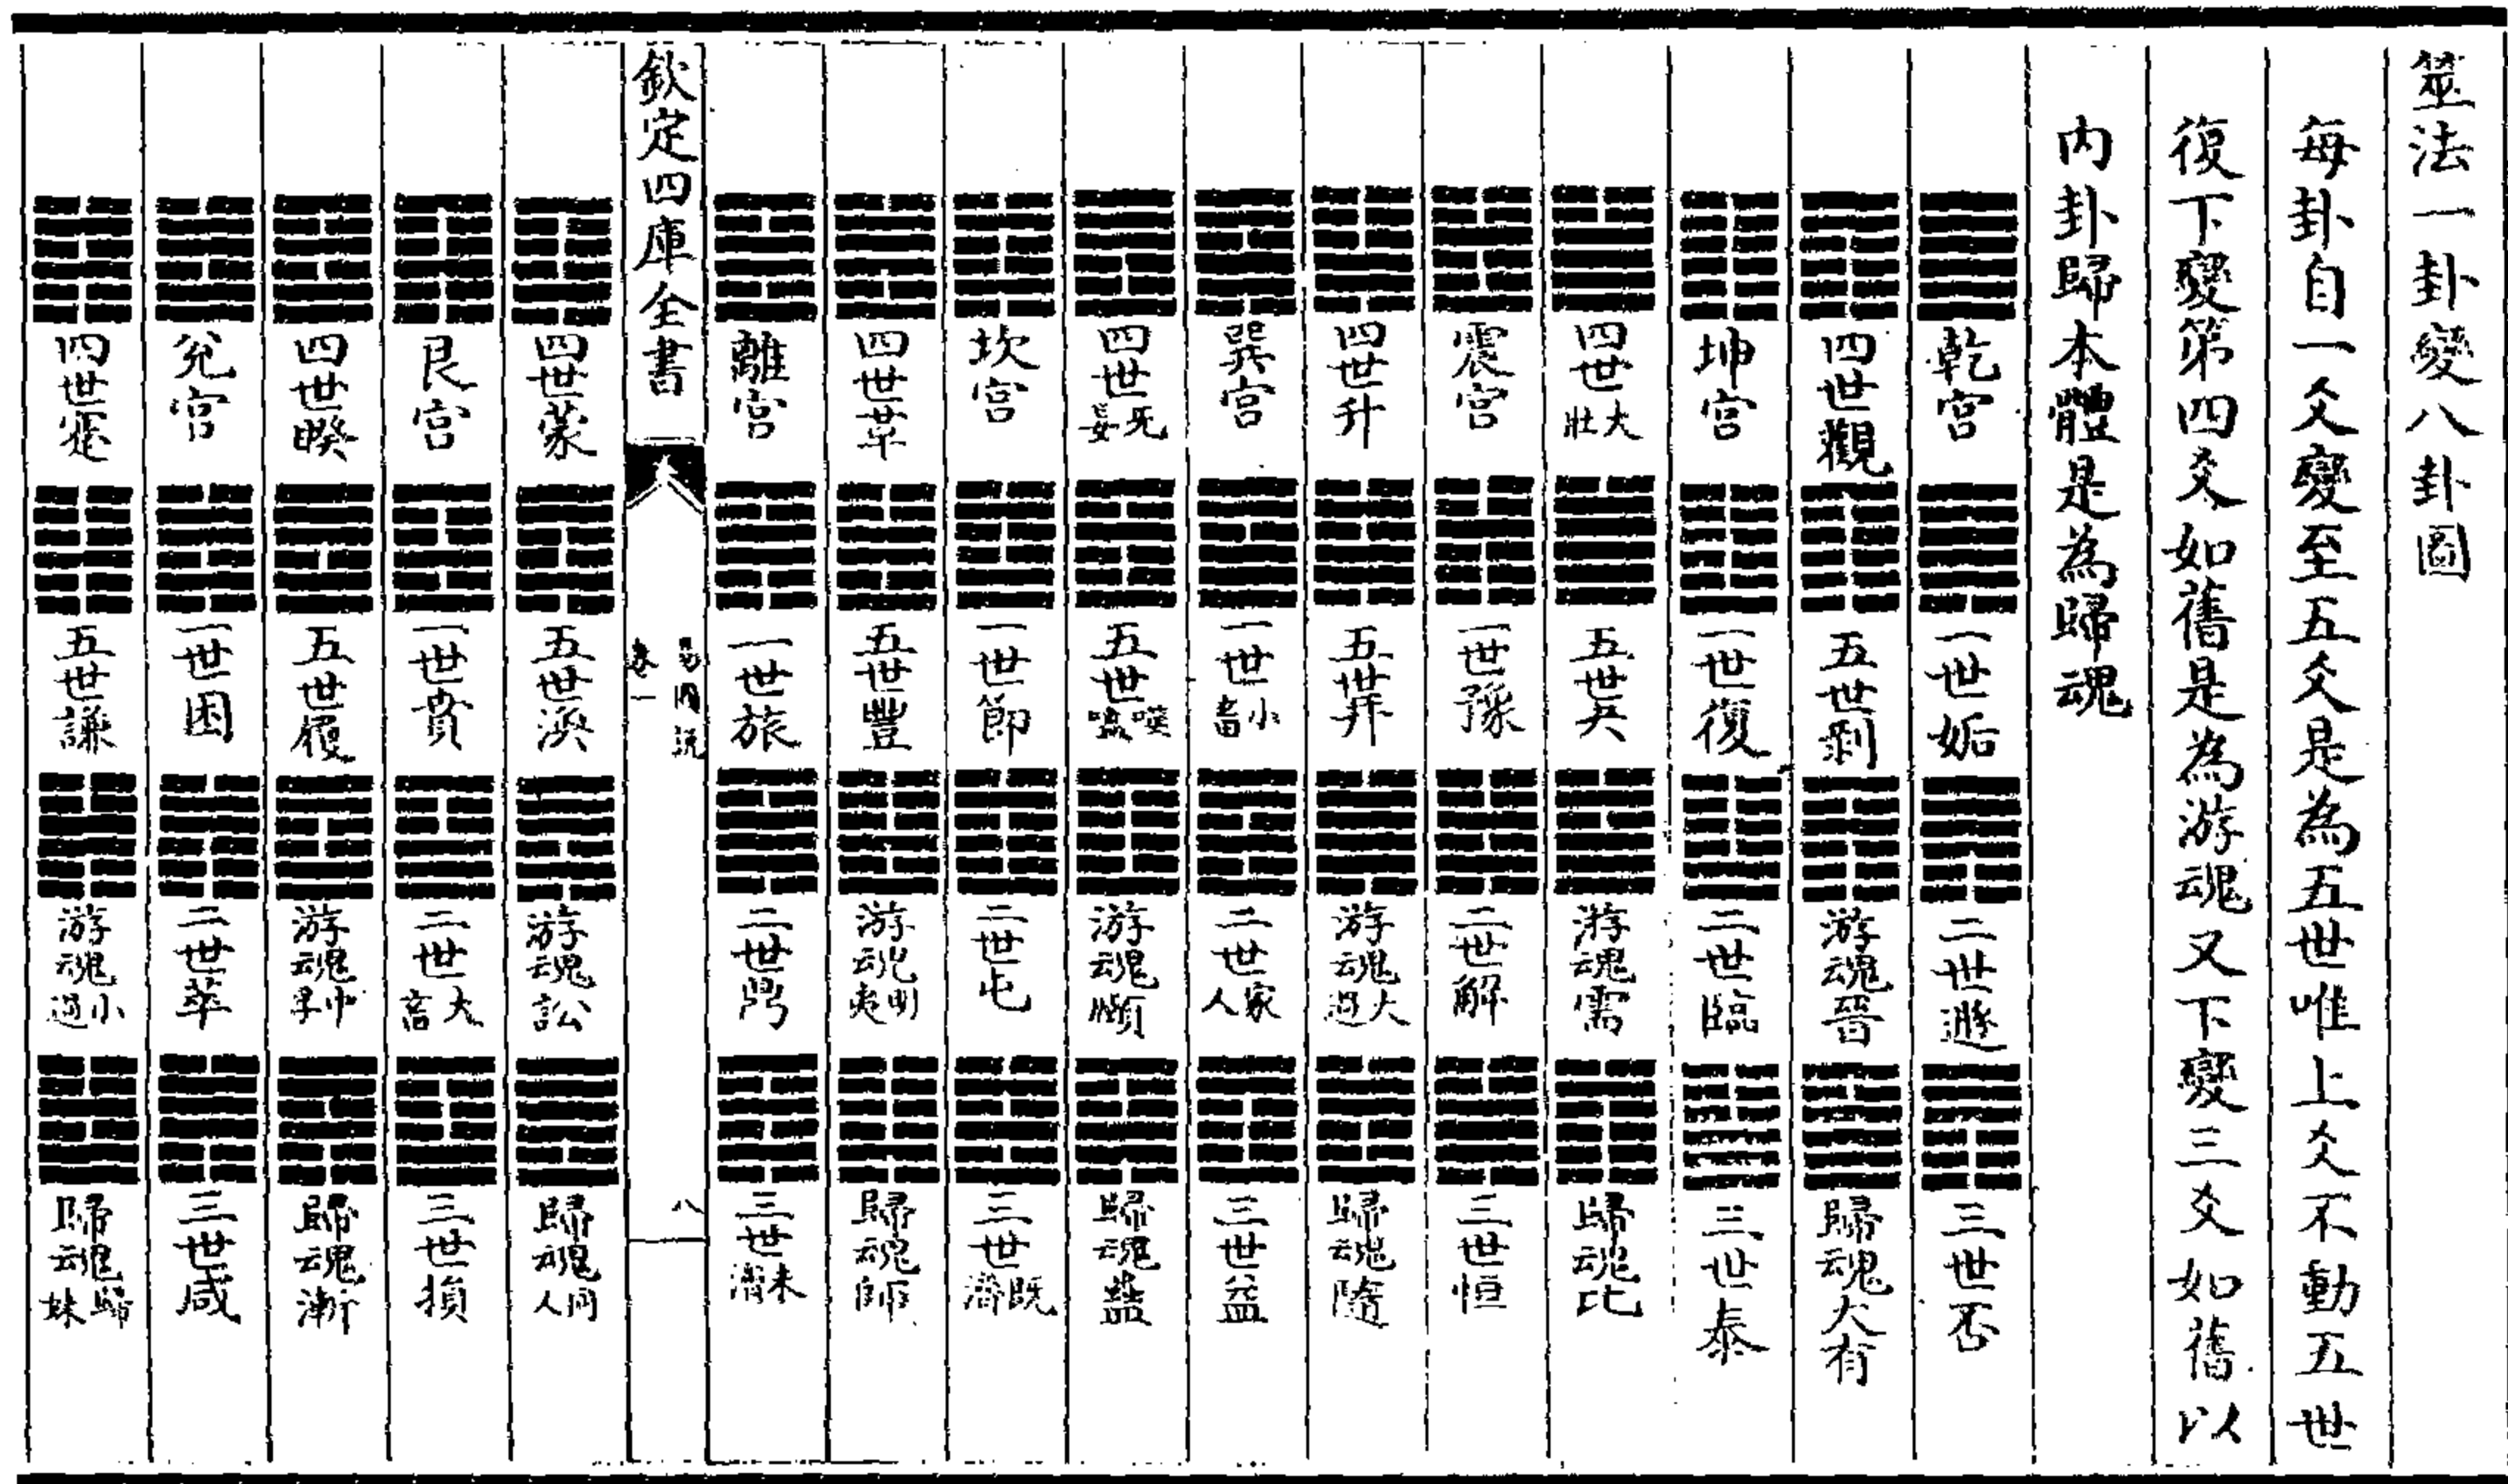 筮法一卦變八卦圖
每卦自一爻變至五爻是為五世唯上爻不動五世
復下變第四爻如舊是為游魂又下變三爻如舊以
内卦歸本體是為歸魂
乾宮 一世姤 二世遯 三世否
四世觀 五世剥 游魂晉 歸魂大有
坤宮 一世復 二世臨 三世泰
四世大壯 五世夬 游魂需 歸魂比
震宮 一世豫 二世解 三世恒
四世升 五世井 游魂大過 歸魂隨
巽宮 一世小畜 二世家人 三世益
四世无妄 五世噬嗑 游魂頤 歸魂蠱
坎宮 一世節 二世屯 三世既濟
四世革 五世豐 游魂明夷 歸魂師
離宮 一世旅 二世鼎 三世未濟
欽定四庫全書
易圖說
卷一
八
四世蒙 五世渙 游魂訟 歸魂同人
艮宮 一世賁 二世大畜 三世損
四世睽 五世履 游魂中孚 歸魂漸
兌宮 一世困 二世萃 三世咸
四世蹇 五世謙 游魂小過 歸魂歸妹